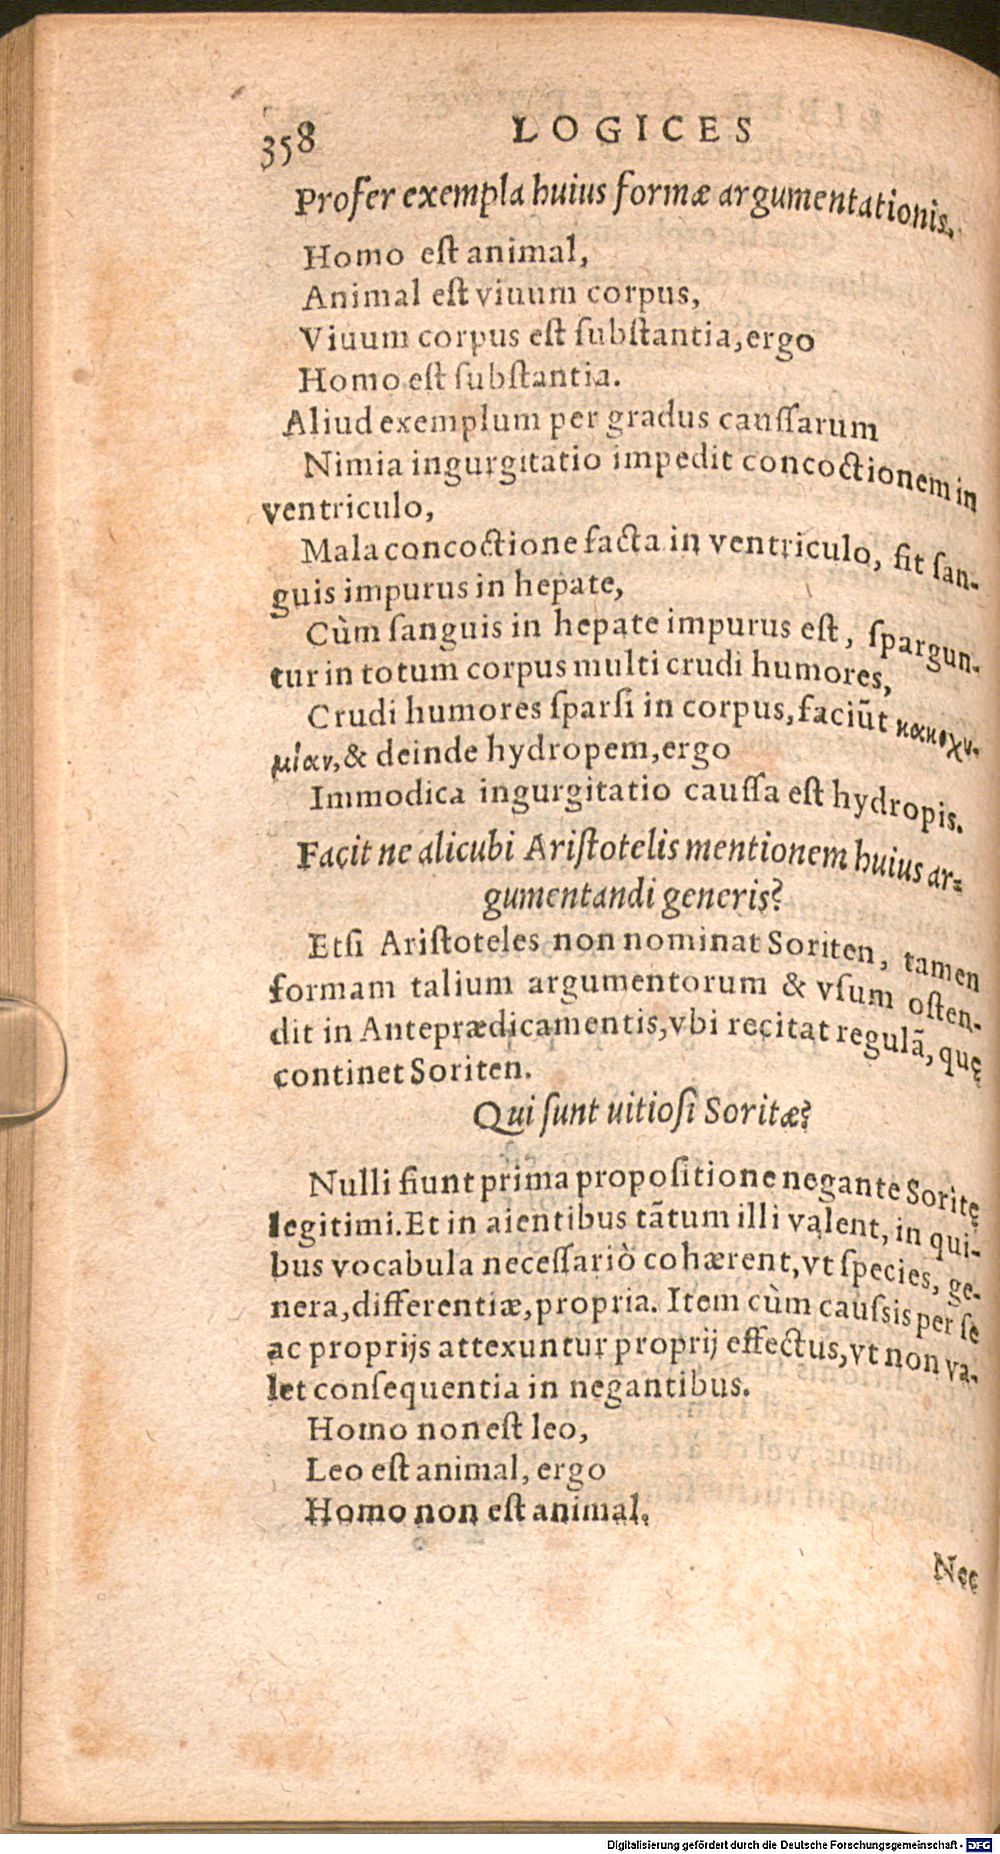 358 LOGICES
Profer exempla huius formæ argumentationis.
Homo eſt animal,
Animal eſt viuum corpus,
Viuum corpus eſt ſubſtantia, ergo
Homo eſt ſubſtantia.
Aliud exemplum per gradus cauſſarum
Nimia ingurgitatio impedit concoctionem in
ventriculo,
Mala concoctione facta in ventriculo, fit ſan-
guis impurus in hepate,
Cùm ſanguis in hepate impurus eſt, ſpargun-
tur in totum corpus multi crudi humores,
Crudi humores ſparſi in corpus, faciũt κακοχυ-
μίαν, & deinde hydropem, ergo
Immodica ingurgitatio cauſſa eſt hydropis.
Facit ne alicubi Ariſtotelis mentionem huius ar-
gumentandi generis?
Etſi Ariſtoteles non nominat Soriten, tamen
formam talium argumentorum & vſum oſten-
dit in Anteprædicamentis, vbi recitat regulã, quę
continet Soriten.
Qui ſunt uitioſi Soritæ?
Nulli fiunt prima propoſitione negante Soritę
legitimi. Et in aientibus tãtum illi valent, in qui-
bus vocabula neceſſariò cohærent, vt ſpecies, ge-
nera, differentiæ, propria. Item cùm cauſsis per ſe
ac proprijs attexuntur proprij effectus, vt non va-
let conſequentia in negantibus.
Homo non eſt leo,
Leo eſt animal, ergo
Homo non eſt animal.
Nec
Digitalisierung gefördert durch die Deutsche Forschungsgemeinschaft - DFG